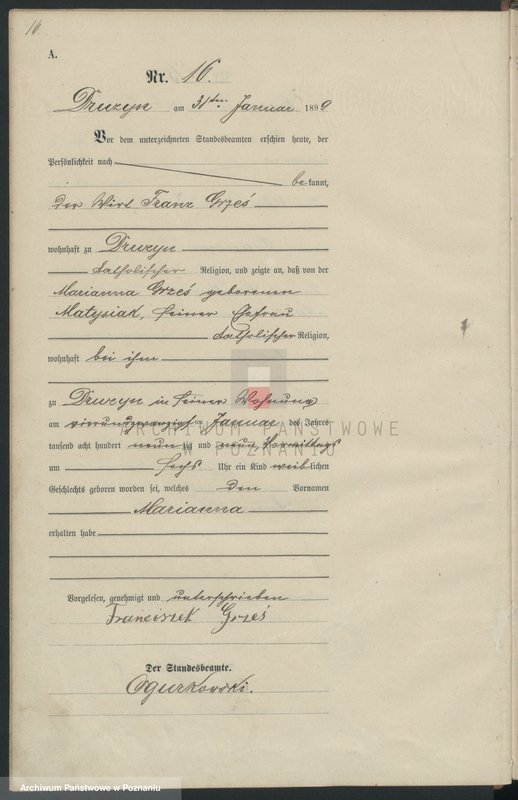 16.
A.
Nr. 16.
Druzyn am 31ten Januar 1899
Vor dem unterzeichneten Standesbeamten erschien heute, der
Persönlichkeit nach
bekannt,
der Wirt Franz Grześ
wohnhaft zu Druzyn
katholischer Religion, und zeigte an, daß von der
Marianna Grześ geborenen
Matysiak, seiner Ehefrau
katholischer Religion,
wohnhaft bei ihm
zu Druzyn in seiner Wohnung
am vierundzwanzigsten Januar des Jahres
tausend acht hundert neunzig und neun Vormittags
um sechs Uhr ein Kind weiblichen
Geschlechts geboren worden sei, welches den Vornamen
Marianna
erhalten habe
Vorgelesen, genehmigt und unterschrieben
Franciszek Grześ
Der Standesbeamte.
Ogurkowski.
ARCHIWUM PAŃSTWOWE
W POZNANIU
Archiwum Państwowe w Poznaniu